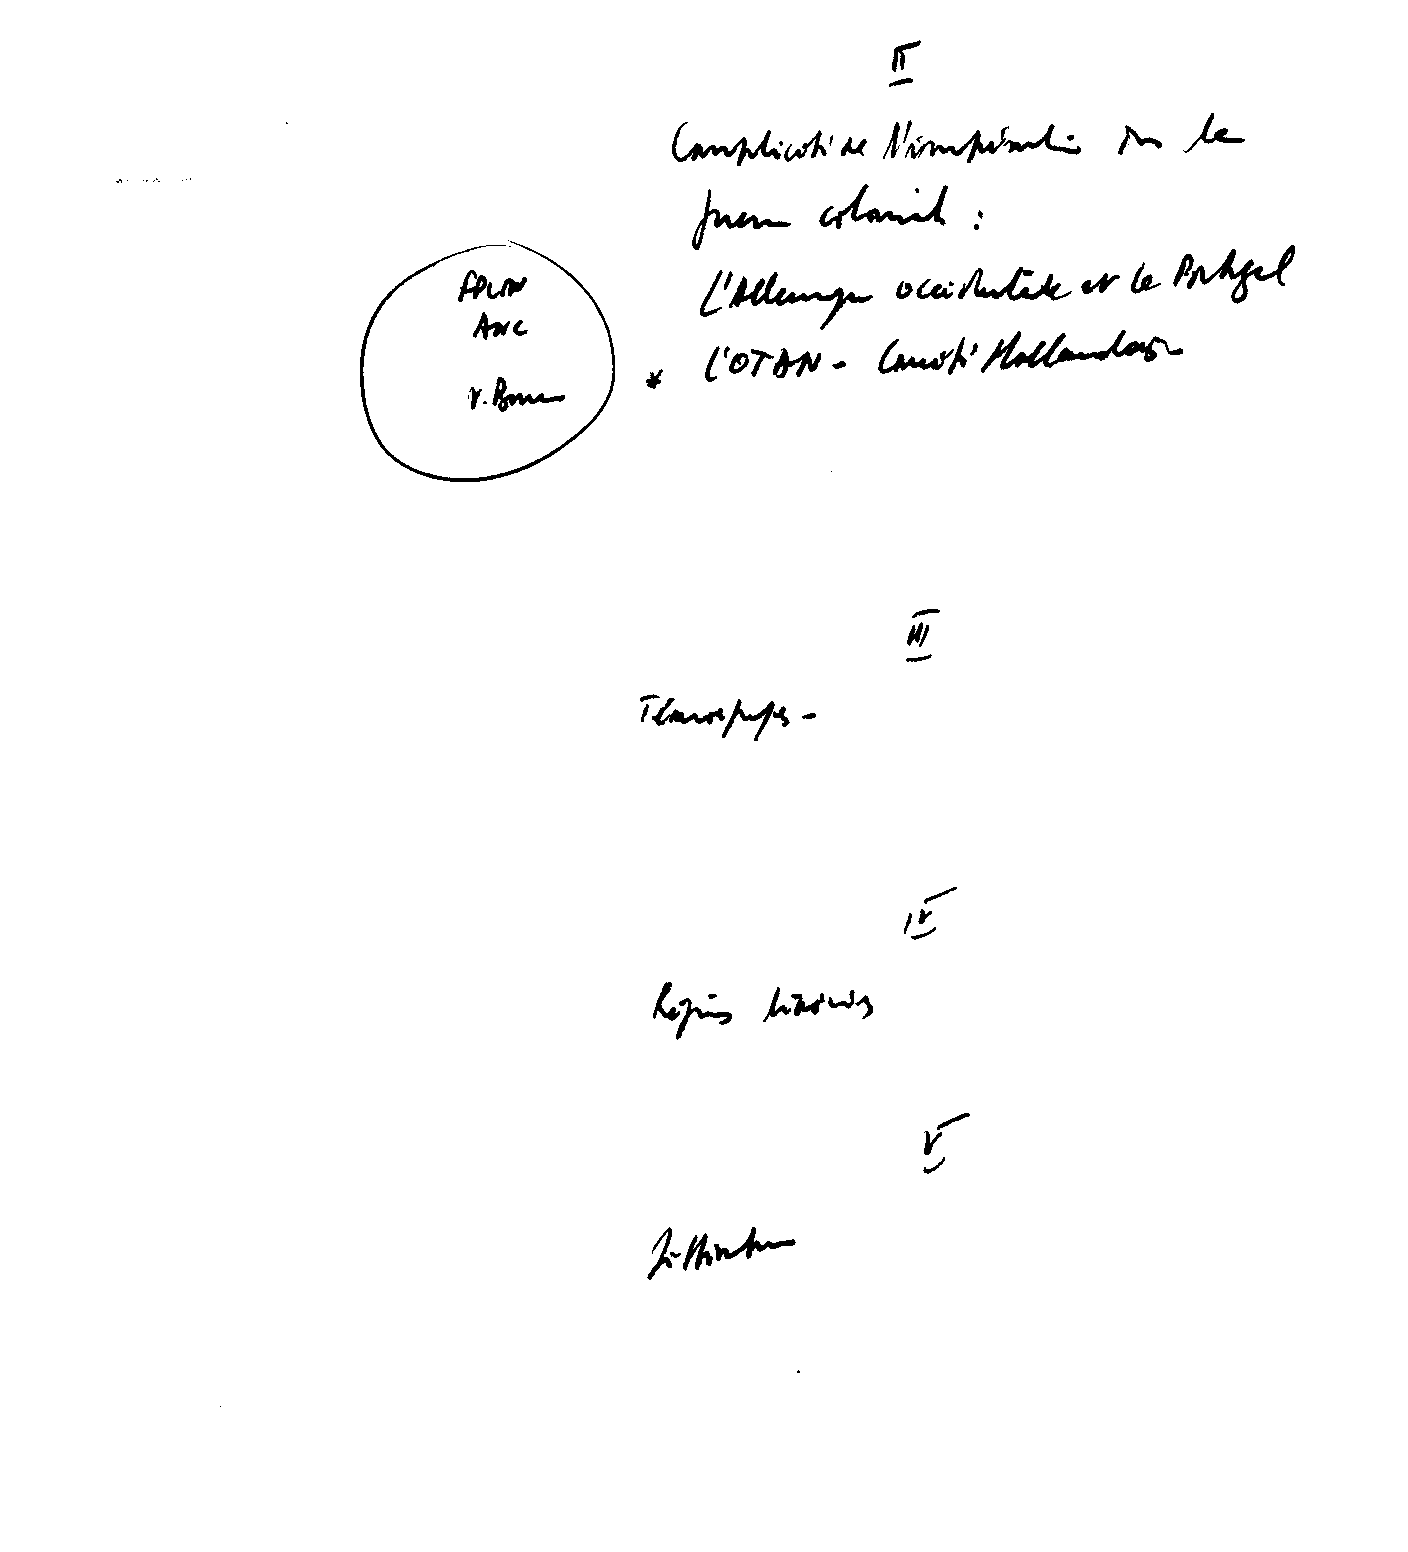 II
Complicité de l'impérialisme dans la
guerre coloniale :
L'Allemagne occidentale et le Portugal
* L'OTAN - Comité Hollandais
FPLN
ANC
III
Témoignages -
IV
Régions libérées
V